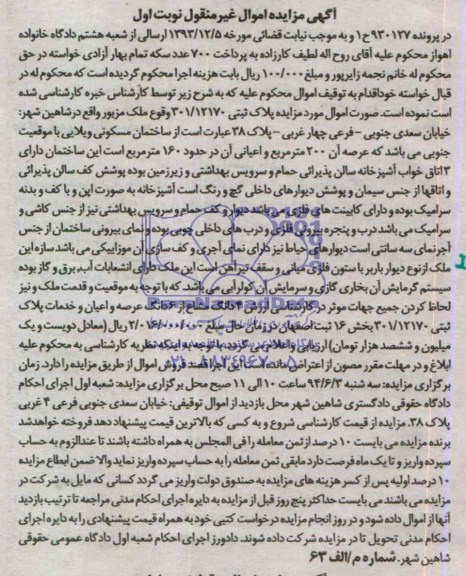 آگهی مزایده اموال غیرمنقول نوبت اول
در پرونده ۹۳۰۱۲۷ ح۱ و به موجب نیابت قضائی مورخه ۱۳۹۳/۱۲/۵ ارسالی از شعبه هشتم دادگاه خانواده
اهواز محکوم علیه آقای روح اله لطیف کارزاده به پرداخت ۷۰۰ عدد سکه تمام بهار آزادی خواسته در حق
محکوم له خانم نجمه زایرپور و مبلغ ۱۰۰/۰۰۰ ریال بابت هزینه اجرا محکوم گردیده است که محکوم له در
قبال خواسته خود اقدام به توقیف اموال محکوم علیه که به شرح زیر توسط کارشناس خبره کارشناسی شده
است نموده است. صورت اموال مورد مزایده پلاک ثبتی ۳۰۱/۱۲۱۷۰ وقوع ملک مزبور واقع در شاهین شهر:
خیابان سعدی جنوبی - فرعی چهار غربی - پلاک ۳۸ عبارت است از ساختمان مسکونی ویلایی با موقعیت
جنوبی می باشد که عرصه آن ۲۰۰ مترمربع و اعیانی آن در حدود ۱۶۰ مترمربع است این ساختمان دارای
۳ اتاق خواب آشپزخانه سالن پذیرائی حمام و سرویس بهداشتی و زیرزمین بوده پوشش کف سالن پذیرائی
و اتاقها از جنس سیمان و پوشش دیوارهای داخلی گچ و رنگ است آشپزخانه به صورت اپن و با کف و بدنه
سرامیک بوده و دارای کابینت های فلزی می باشد دیوار و کف حمام و سرویس بهداشتی نیز از جنس کاشی و
سرامیک می باشد درب و پنجره بیرونی فلزی و درب های داخلی چوبی بوده و نمای بیرونی ساختمان از جنس
آجر نمای سه سانتی است دیوارهای حیاط نیز دارای نمای آجری و کف سازی آن موزاییکی می باشد سازه این
ملک از نوع دیوار باربر با ستون فلزی میانی و سقف تیرآهن است این ملک دارای انشعابات آب، برق و گاز بوده
سیستم گرمایش آن بخاری گازی و سرمایش آن کولر آبی می باشد. که با توجه به موقعیت و قدمت ملک و نیز
لحاظ کردن جمیع جهات موثر در کارشناسی ارزش ۶ دانگ مشاع از ۶ دانگ عرصه و اعیان و خدمات پلاک
ثبتی ۳۰۱/۱۲۱۷۰ بخش ۱۶ ثبت اصفهان در زمان حال مبلغ ریال (معادل دویست و یک
میلیون و ششصد هزار تومان) ارزیابی و اعلام می گردد. با توجه به اینکه نظریه کارشناسی به محکوم علیه
ابلاغ و در مهلت مقرر مصون از اعتراض مانده است این اجرا قصد فروش اموال از طریق مزایده را دارد. زمان
برگزاری مزایده: سه شنبه ۹۴/۶/۳ ساعت ۱۰ الی ۱۱ صبح محل برگزاری مزایده: شعبه اول اجرای احکام
دادگاه حقوقی دادگستری شاهین شهر محل بازدید از اموال توقیفی: خیابان سعدی جنوبی فرعی ۴ غربی
پلاک ۳۸. مزایده از قیمت کارشناسی شروع و به کسی که بالاترین قیمت پیشنهاد دهد فروخته خواهد شد
برنده مزایده می بایست ۱۰ درصد از ثمن معامله را فی المجلس به همراه داشته باشند تا عندالزوم به حساب
سپرده واریز و تا یک ماه فرصت دارد مابقی ثمن معامله را به حساب سپرده واریز نماید والا ضمن ابطال مزایده
۱۰ درصد اولیه پس از کسر هزینه های مزایده به صندوق دولت واریز می گردد کسانی که مایل به شرکت در
مزایده می باشند می بایست حداکثر پنج روز قبل از مزایده به دایره اجرای احکام مدنی مراجعه تا ترتیب بازدید
آنها از اموال داده شود و در روز انجام مزایده درخواست کتبی خود به همراه قیمت پیشنهادی را به دایره اجرای
احکام مدنی تحویل تا در مزایده شرکت داده شوند. دادورز اجرای احکام شعبه اول دادگاه عمومی حقوقی
شاهین شهر. شماره م/الف ۶۳